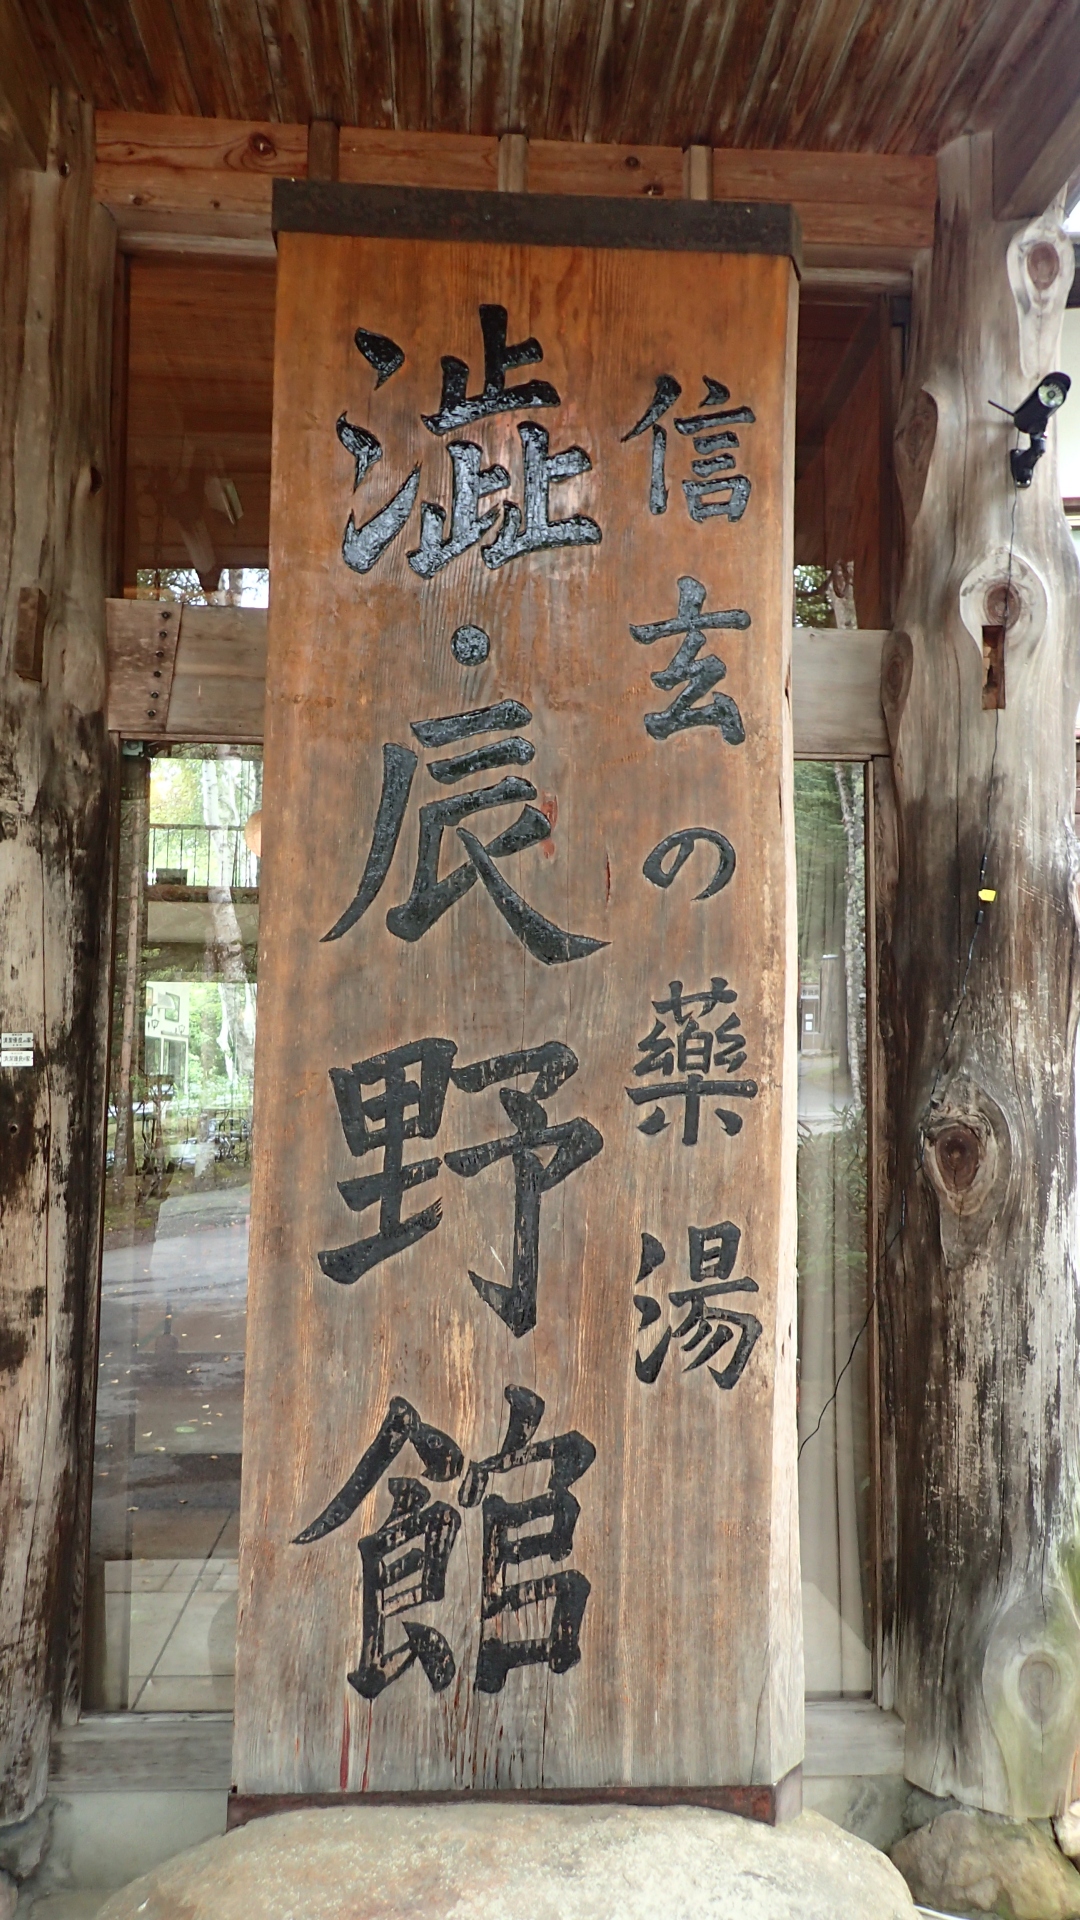 信玄の藥湯
澁・辰野館